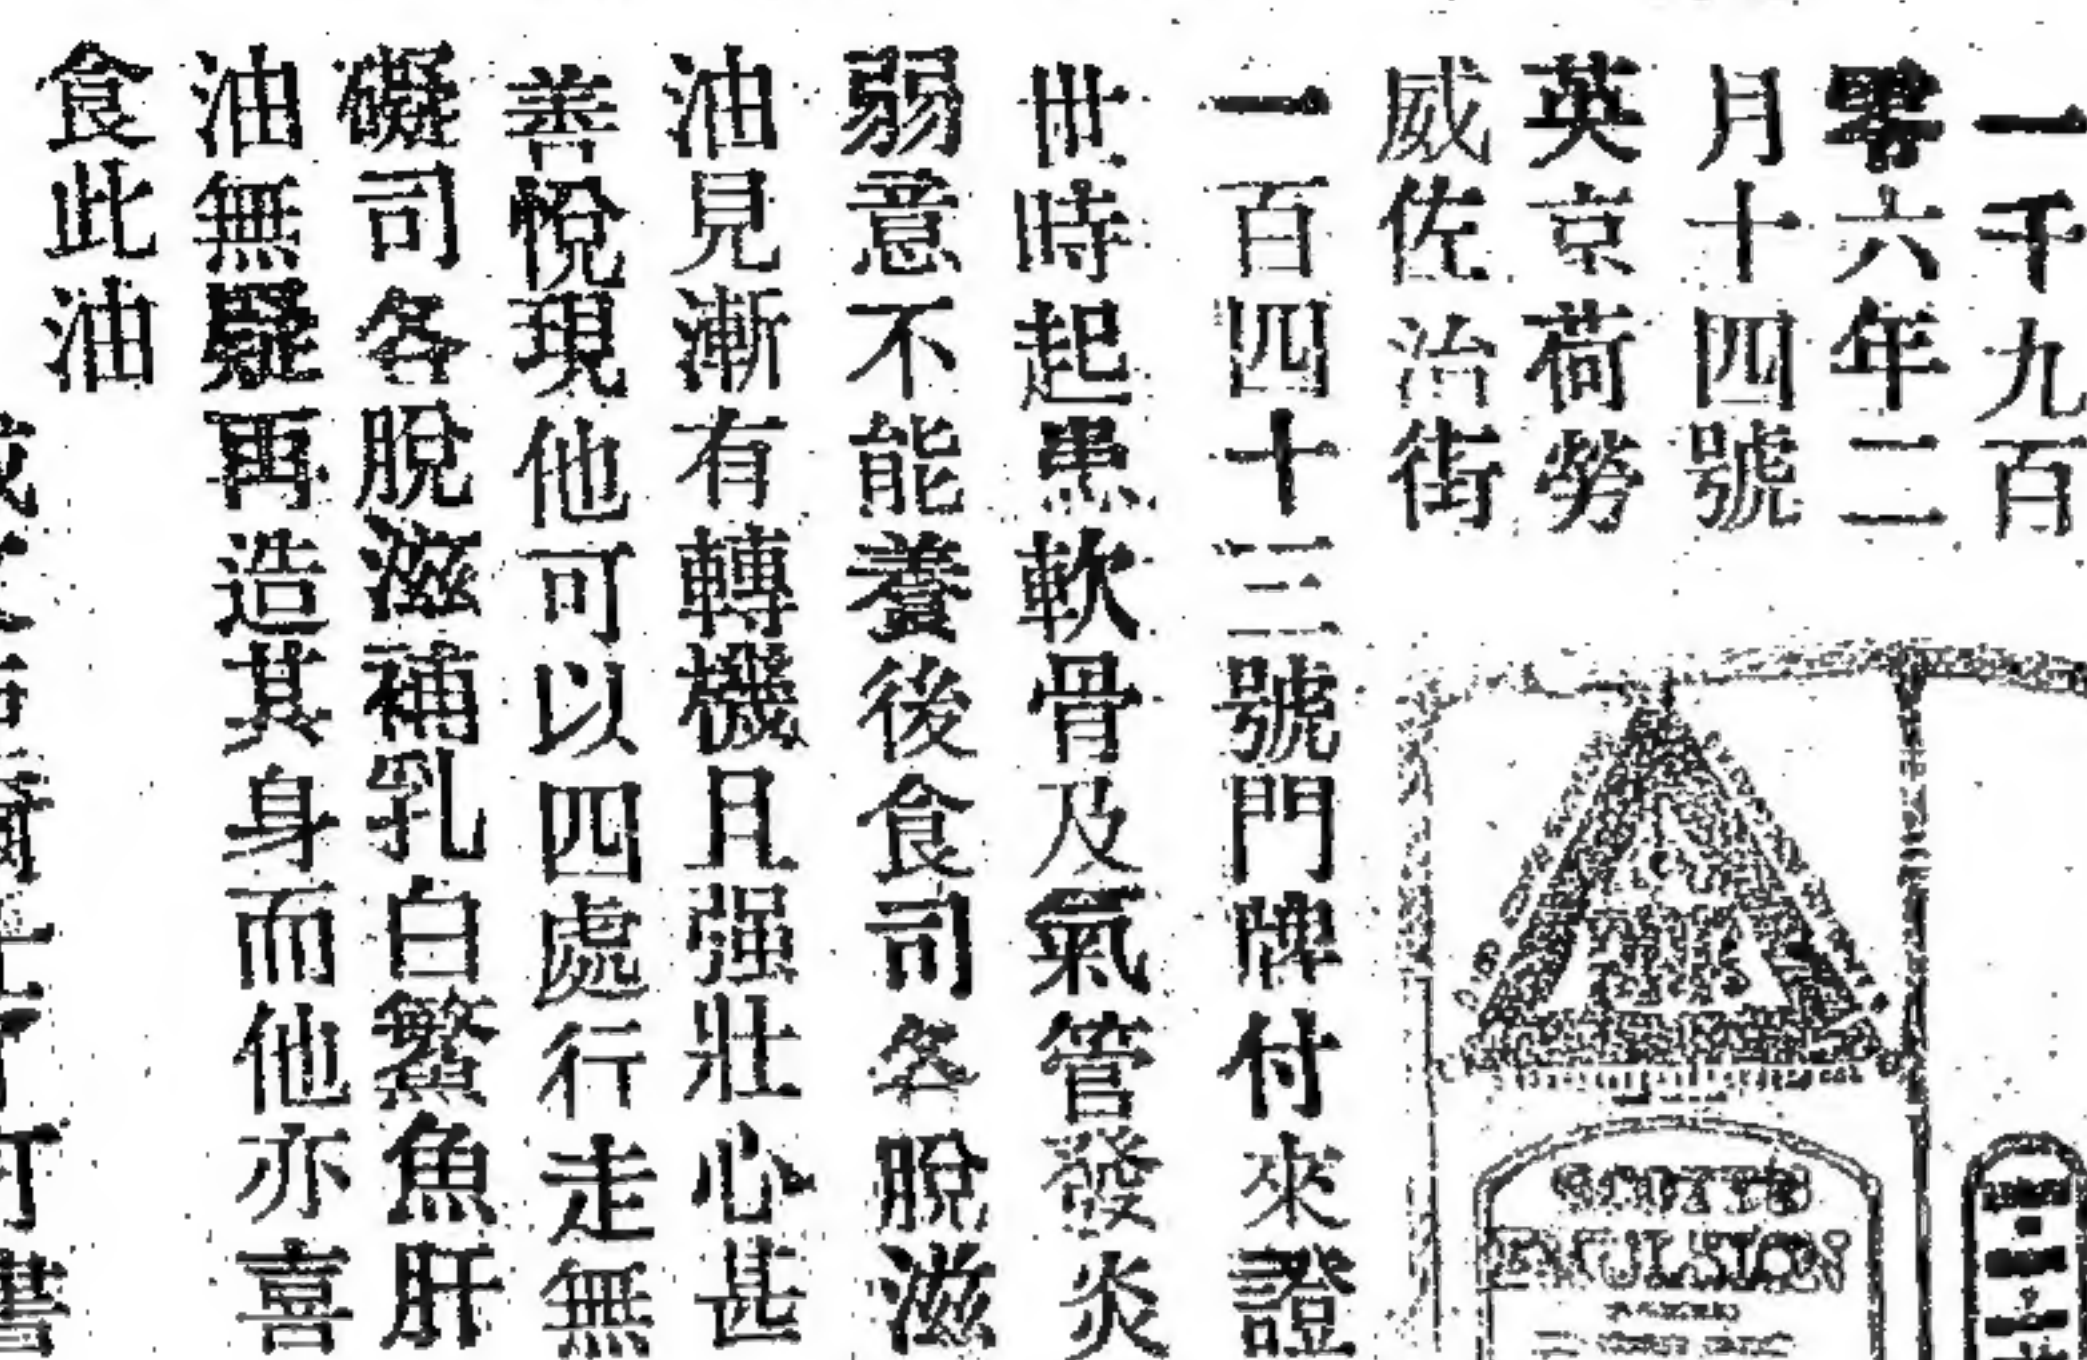 一千九百
零六年二
月十四號
英京荷勞
威佐治街
一百四十三號門牌付來證
世時起患軟骨及氣管發炎
弱意不能養後食司各脫滋
油見漸有轉機且强壯心甚
善悅現他可以四處行走無
礙司各脫滋補乳白鰵魚肝
油無疑再造其身而他亦喜
食此油
SCOTT'S
EMULSION